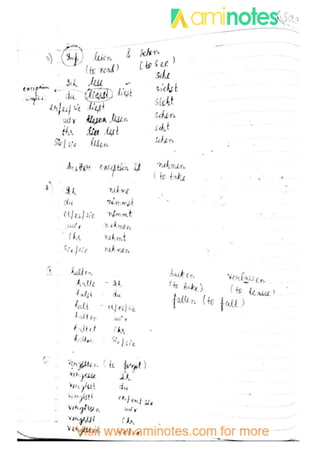 aminotes
lesen & sehen
(to read) (to see)
Ich lese sehe
exception du liest siehst
er/es/sie liest sieht
wir lesen sehen
Ihr lest seht
Sie/sie lesen sehen
Another exception is nehmen
(to take
Ich nehme
du nimmst
er/es/sie nimmt
wir nehmen
Ihr nehmt
Sie/sie nehmen
halten backen verlassen
halte - Ich (to bake) (to leave)
du fallen (to fall)
halt er/es/sie
halten wir
haltet ihr
halten Sie/sie
vergessen (to forget)
vergesse Ich
du
wir
Ihr
visit www.aminotes.com for more